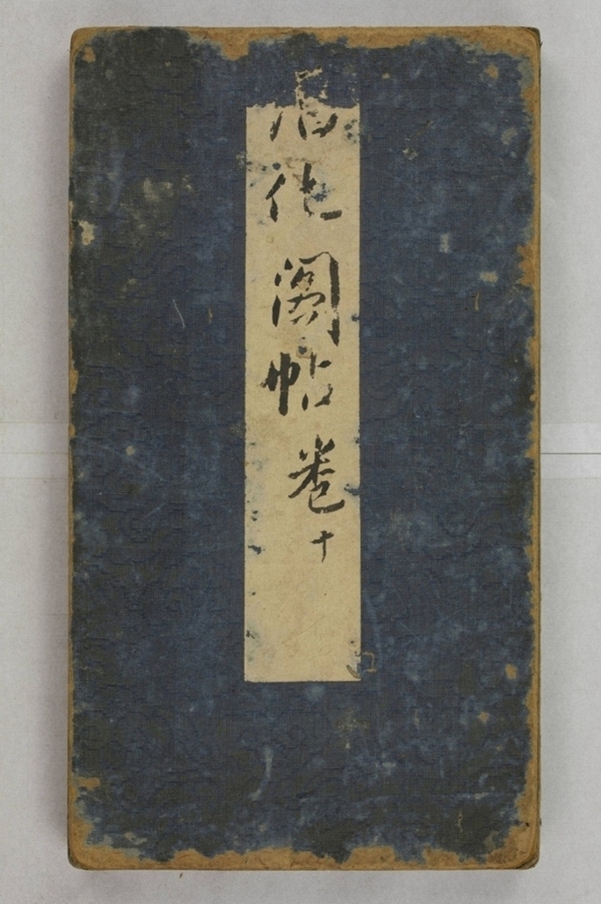 淳化閣帖卷十